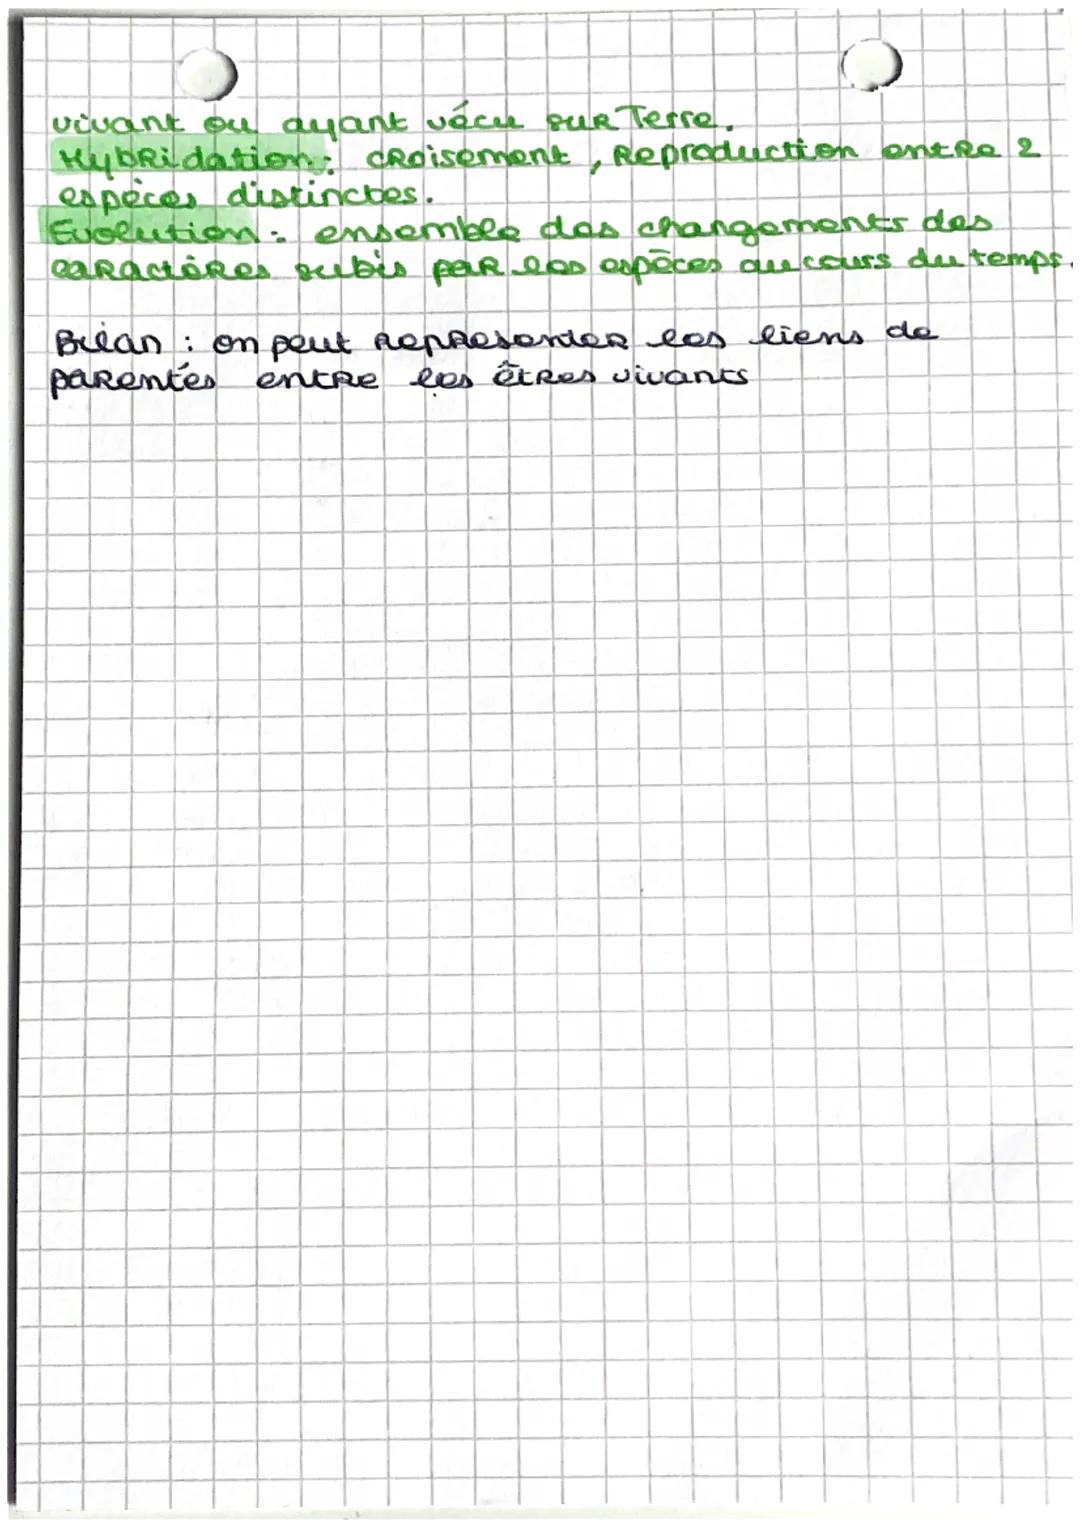 vivant ou ayant vécu sur Terre.
Hybridation : croisement, Reproduction entre 2
espèces distinctes.
Evolution : ensemble des changements des
caractères subis par les espèces au cours du temps.
Bilan : on peut représenter les liens de
parentés entre les êtres vivants